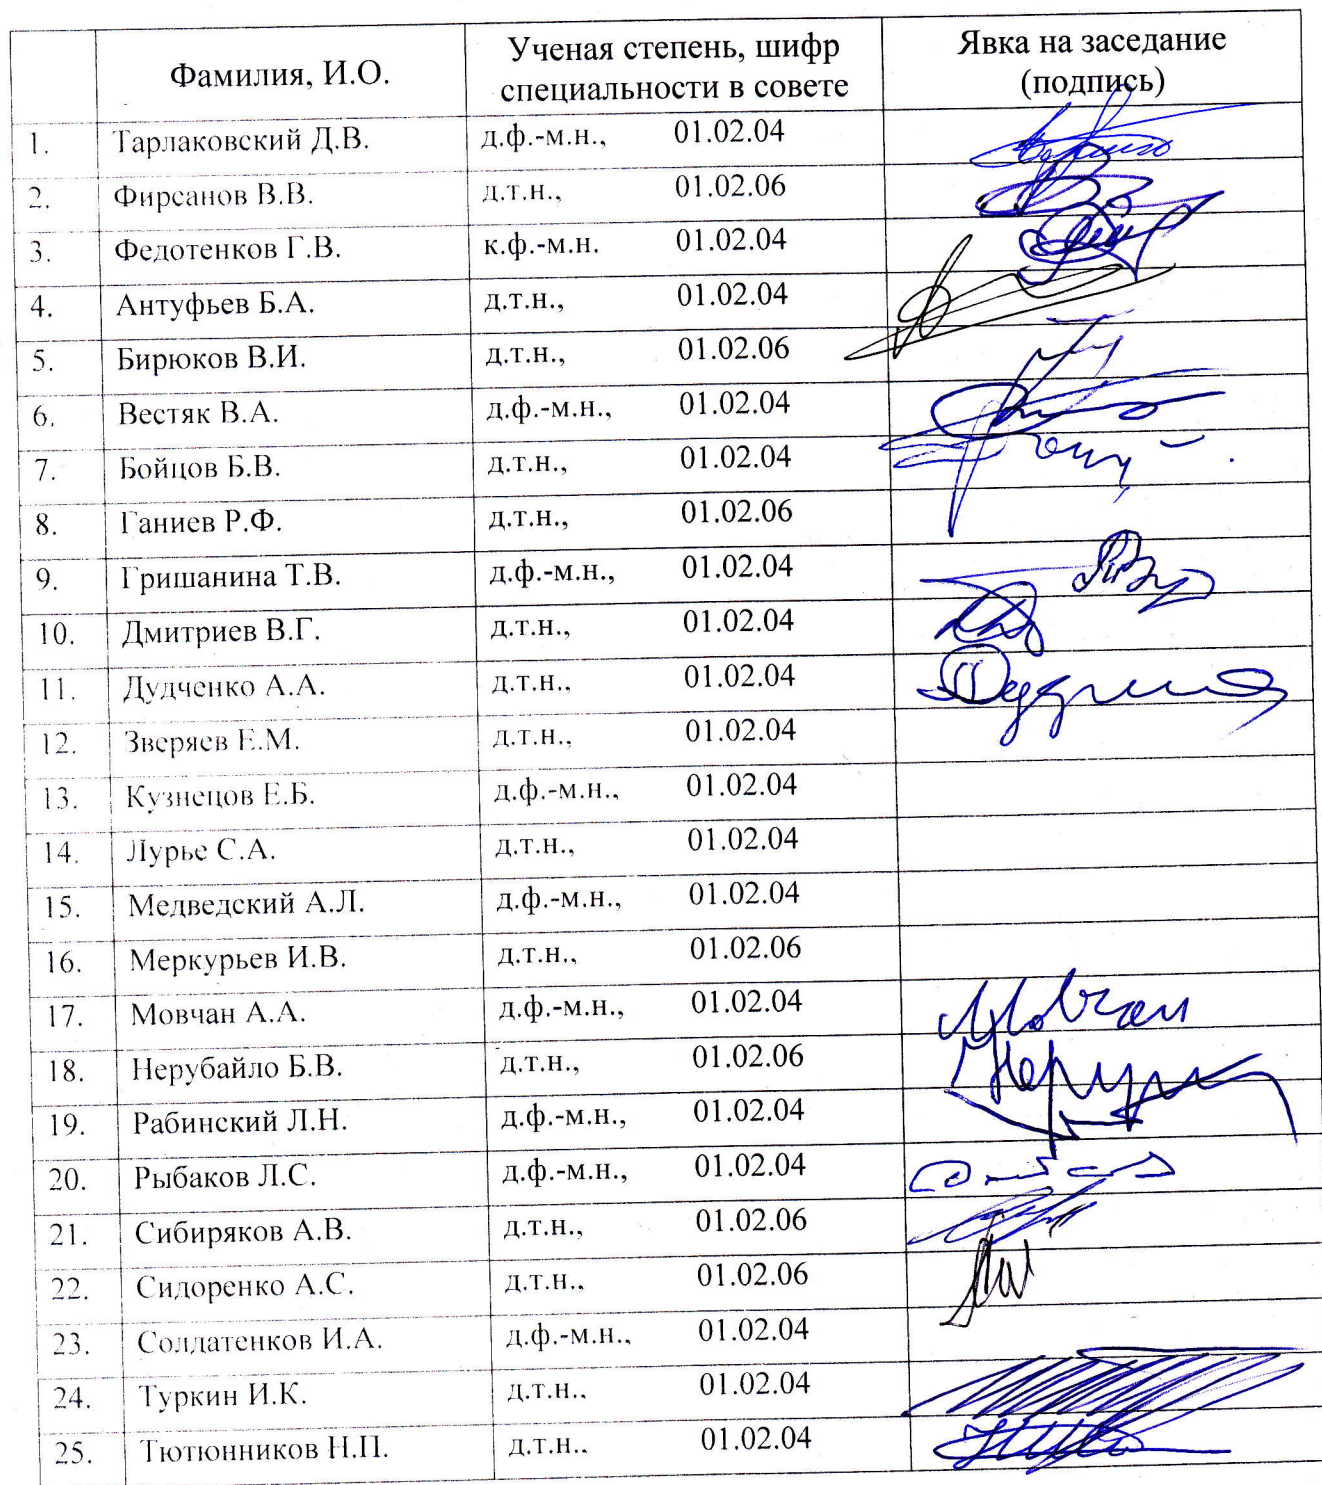 Фамилия, И.О.
Ученая степень, шифр
специальности в совете
Явка на заседание
(подпись)
1. Тарлаковский Д.В. д.ф.-м.н., 01.02.04
2. Фирсанов В.В. д.т.н., 01.02.06
3. Федотенков Г.В. к.ф.-м.н. 01.02.04
4. Антуфьев Б.А. д.т.н., 01.02.04
5. Бирюков В.И. д.т.н., 01.02.06
6. Вестяк В.А. д.ф.-м.н., 01.02.04
7. Бойцов Б.В. д.т.н., 01.02.04
8. Ганиев Р.Ф. д.т.н., 01.02.06
9. Гришанина Т.В. д.ф.-м.н., 01.02.04
10. Дмитриев В.Г. д.т.н., 01.02.04
11. Дудченко А.А. д.т.н., 01.02.04
12. Зверяев Е.М. д.т.н., 01.02.04
13. Кузнецов Е.Б. д.ф.-м.н., 01.02.04
14. Лурье С.А. д.т.н., 01.02.04
15. Медведский А.Л. д.ф.-м.н., 01.02.04
16. Меркурьев И.В. д.т.н., 01.02.06
17. Мовчан А.А. д.ф.-м.н., 01.02.04 Мовчан
18. Нерубайло Б.В. д.т.н., 01.02.06
19. Рабинский Л.Н. д.ф.-м.н., 01.02.04
20. Рыбаков Л.С. д.ф.-м.н., 01.02.04
21. Сибиряков А.В. д.т.н., 01.02.06
22. Сидоренко А.С. д.т.н., 01.02.06
23. Солдатенков И.А. д.ф.-м.н., 01.02.04
24. Туркин И.К. д.т.н., 01.02.04
25. Тютюнников Н.П. д.т.н., 01.02.04